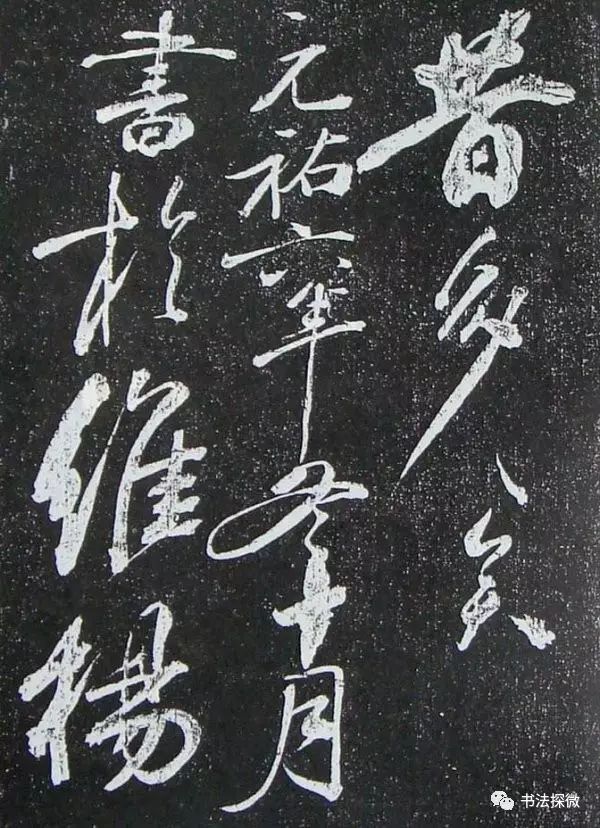 昔多矣
元祐六年冬十月
書於維楊
书法探微